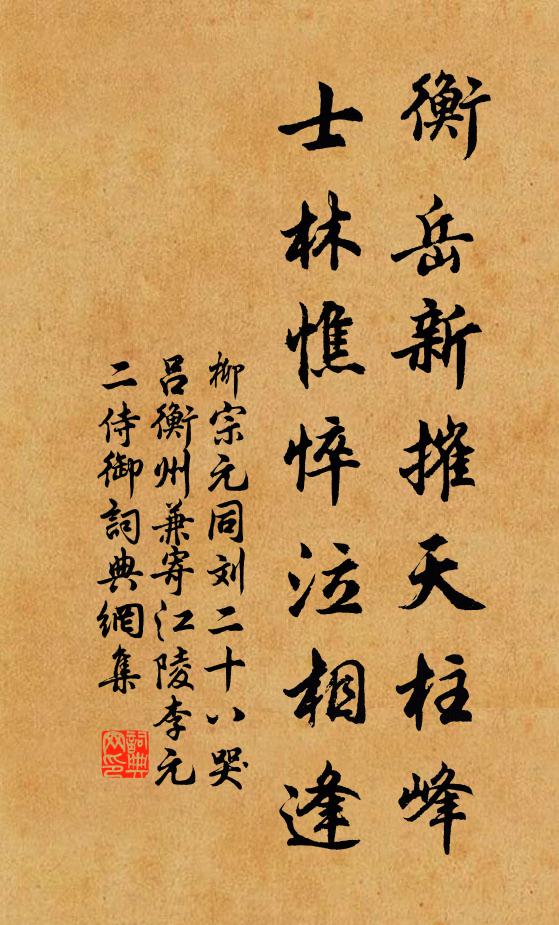 衡岳新摧天柱峰
士林憔悴泣相逢
柳宗元同刘二十八哭
吕衡州兼寄江陵李元
二侍御詞典網集
詞典網印